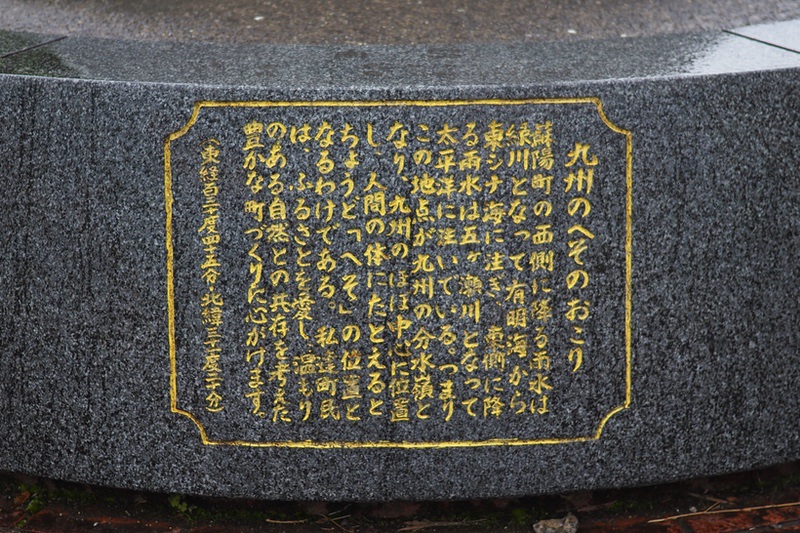 九州のへそのおこり
蘇陽町の西側に降る雨水は
緑川となって有明海から
東シナ海に注ぎ、東側に降
る雨水は五ヶ瀬川となって
太平洋に注いでいる。つまり
この地点が九州の分水嶺と
なり、九州のほぼ中心に位置
し、人間の体にたとえると
ちょうど「へそ」の位置と
なるわけである。私達町民
は、ふるさとを愛し、温もり
のある自然との共存を考えた
豊かな町づくりに心がけます。
(東経百三十度四十五分・北緯三十二度二十分)